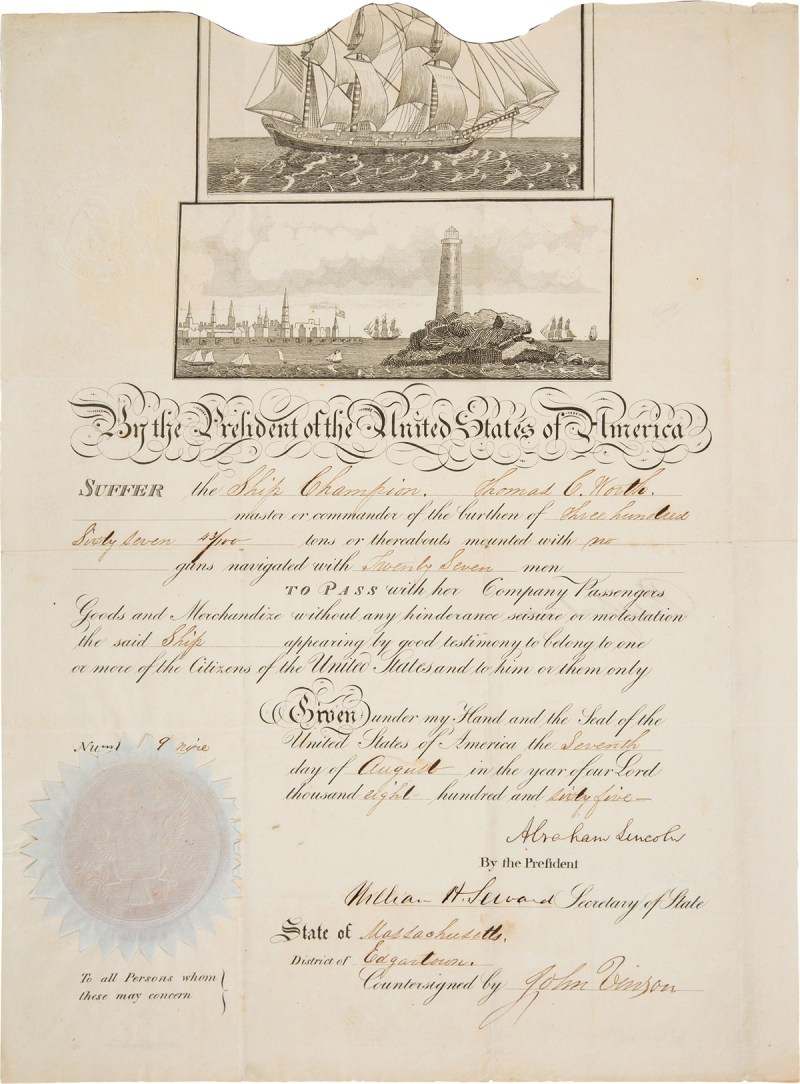 By the President of the United States of America
SUFFER the Ship Champion. Thomas C. Worth.
master or commander of the burthen of Three hundred
Sixty seven 43/100 tons or thereabouts mounted with no
guns navigated with Twenty Seven men
TO PASS with her Company Passengers
Goods and Merchandize without any hinderance seisure or molestation
the said Ship appearing by good testimony to belong to one
or more of the Citizens of the United States and to him or them only
Given under my Hand and the Seal of the
United States of America the Seventh
day of August in the year of our Lord
thousand eight hundred and sixty five
9 nine
Abraham Lincoln
By the President
William H. Seward Secretary of State
State of Massachusetts.
District of Edgartown.
Countersigned by John Vinson
To all Persons whom
these may concern